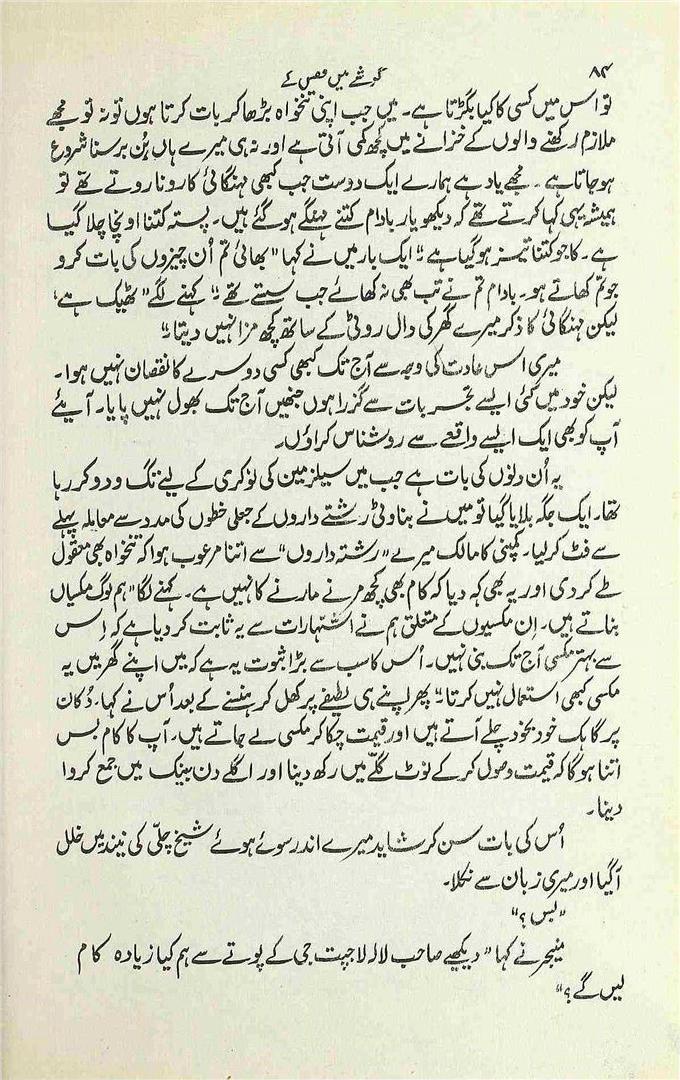 ۸۴
گوشے میں قفس کے
تو اس میں کسی کا کیا بگڑتا ہے۔ میں جب اپنی تنخواہ بڑھا کر بات کرتا ہوں تو نہ تو مجھے
ملازم رکھنے والوں کے خزانے میں کچھ کمی آتی ہے اور نہ ہی میرے ہاں ہُن برسنا شروع
ہو جاتا ہے۔ مجھے یاد ہے ہمارے ایک دوست جب کبھی مہنگائی کا رونا روتے تھے تو
ہمیشہ یہی کہا کرتے تھے کہ دیکھو یار بادام کتنے مہنگے ہو گئے ہیں۔ پستہ کتنا اونچا چلا گیا
ہے۔ کاجو کتنا تیز ہو گیا ہے" ایک بار میں نے کہا "بھائی تم اُن چیزوں کی بات کرو
جو تم کھاتے ہو۔ بادام تم نے تب بھی نہ کھائے جب سستے تھے" کہنے لگے "ٹھیک ہے،
لیکن مہنگائی کا ذکر میرے گھر کی دال روٹی کے ساتھ کچھ مزا نہیں دیتا"
میری اس عادت کی وجہ سے آج تک کبھی کسی دوسرے کا نقصان نہیں ہوا۔
لیکن خود میں کئی ایسے تجربات سے گزرا ہوں جنھیں آج تک بھول نہیں پایا۔ آیئے
آپ کو بھی ایک ایسے واقعے سے روشناس کراؤں۔
یہ اُن دنوں کی بات ہے جب میں سیلزمین کی نوکری کے لیے تگ و دو کر رہا
تھا۔ ایک جگہ بلایا گیا تو میں نے بناوٹی رشتے داروں کے جعلی خطوں کی مدد سے معاملہ پہلے
سے فٹ کر لیا۔ کمپنی کا مالک میرے "رشتہ داروں" سے اتنا مرعوب ہوا کہ تنخواہ بھی معقول
طے کر دی اور یہ بھی کہہ دیا کہ کام بھی کچھ مرنے مارنے کا نہیں ہے۔ کہنے لگا "ہم لوگ مکسیاں
بناتے ہیں۔ اِن مکسیوں کے متعلق ہم نے اشتہارات سے یہ ثابت کر دیا ہے کہ اِس
سے بہتر مکسی آج تک بنی نہیں۔ اُس کا سب سے بڑا ثبوت یہ ہے کہ میں اپنے گھر میں یہ
مکسی کبھی استعمال نہیں کرتا" پھر اپنے ہی لطیفے پر کھل کر ہنسنے کے بعد اُس نے کہا۔ دُکان
پر گاہک خود بخود چلے آتے ہیں اور قیمت چکا کر مکسی لے جاتے ہیں۔ آپ کا کام بس
اتنا ہو گا کہ قیمت وصول کر کے نوٹ گلّے میں رکھ دینا اور اگلے دن بینک میں جمع کروا
دینا۔
اُس کی بات سن کر شاید میرے اندر سوئے ہوئے شیخ چلّی کی نیند میں خلل
آ گیا اور میری زبان سے نکلا۔
"بس؟"
منیجر نے کہا "دیکھیے صاحب لالہ لاجپت جی کے پوتے سے ہم کیا زیادہ کام
لیں گے؟"